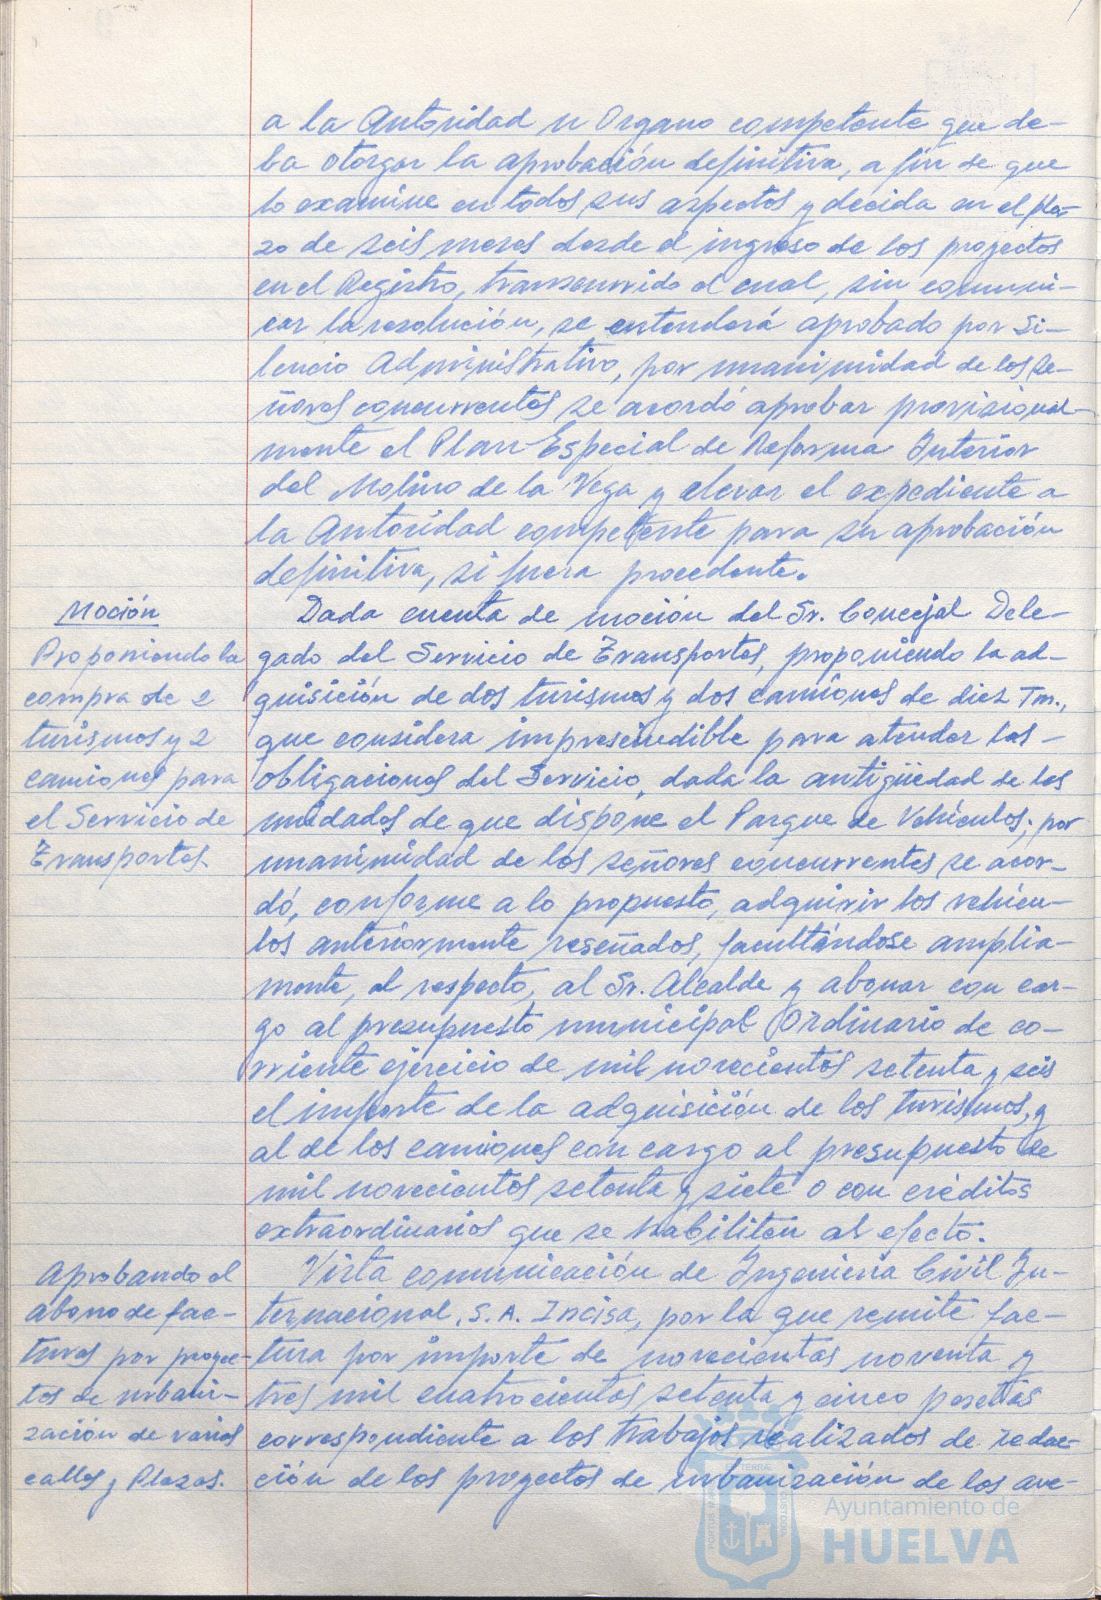 a la Autoridad u Organo competente que de-
ba otorgar la aprobación definitiva, a fin de que
lo examine en todos sus aspectos y decida en el pla-
zo de seis meses desde el ingreso de los proyectos
en el Registro, transcurrido el cual, sin comuni-
car la resolución, se entenderá aprobado por Si-
lencio Administrativo, por unanimidad de los Se-
ñores concurrentes se acordó aprobar provisional-
mente el Plan Especial de Reforma Interior
del Molino de la Vega y elevar el expediente a
la Autoridad competente para su aprobación
definitiva, si fuera procedente.
Moción
Proponiendo la
compra de 2
turismos y 2
camiones para
el Servicio de
Transportes.
Dada cuenta de moción del Sr. Concejal Dele-
gado del Servicio de Transportes, proponiendo la ad-
quisición de dos turismos y dos camiones de diez Tm.,
que considera imprescindible para atender las
obligaciones del Servicio, dada la antigüedad de las
unidades de que dispone el Parque de Vehículos; por
unanimidad de los señores concurrentes se acor-
dó, conforme a lo propuesto, adquirir los vehícu-
los anteriormente reseñados, facultándose amplia-
mente, al respecto, al Sr. Alcalde y abonar con car-
go al presupuesto municipal Ordinario de co-
rriente ejercicio de mil novecientos setenta y seis
el importe de la adquisición de los turismos, y
al de los camiones con cargo al presupuesto de
mil novecientos setenta y siete o con créditos
extraordinarios que se habiliten al efecto.
Aprobando el
abono de fac-
turas por proyec-
tos de urbani-
zación de varias
calles y Plazas.
Vista comunicación de Ingeniería Civil In-
ternacional, S.A. Incisa, por la que remite fac-
tura por importe de novecientas noventa y
tres mil cuatrocientas setenta y cinco pesetas
correspondiente a los trabajos realizados de redac-
ción de los proyectos de urbanización de los acc-
Ayuntamiento de
HUELVA